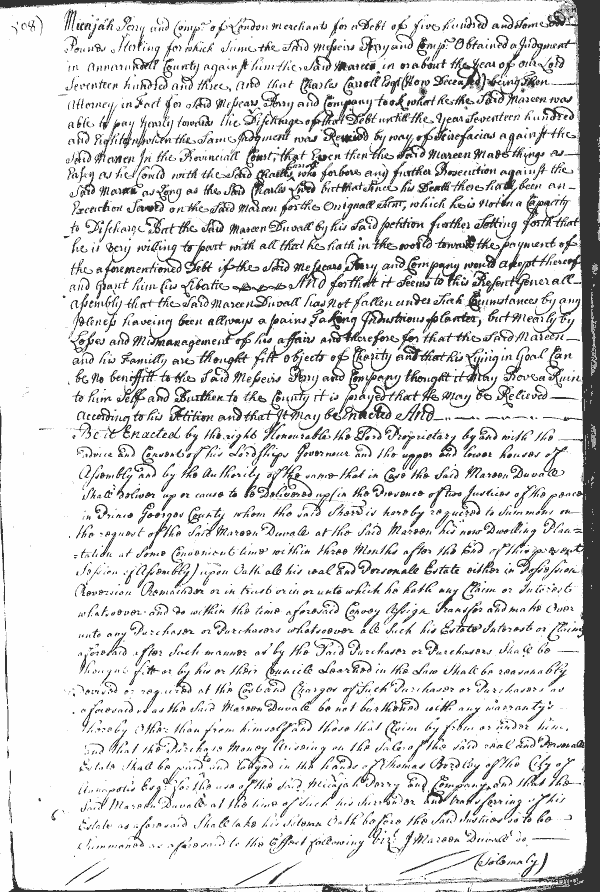 (508)
Micajah Perry and Compa. of London Merchants for a Debt of five hundred and some odd
Pounds Sterling for which Sume the Said Messeirs Perry and Compa. Obtained a Judgment
in annarundell County against him the Said Mareen in or about the Year of our Lord
Seventeen hundred and three, and that Charles Carroll Esqr. (Now Deceased) being then
Attorney in Fact for Said Messears Perry and Company took what he the Said Mareen was
able to pay Yearly towards the Discharge of that Debt until the Year Seventeen hundred
and Eighteen when the Same Judgment was Revived by way of Scirefacias against the
Said Mareen In the Provinciall Court, that Even then the Said Mareen Made things as
Easy as he Could with the Said Charles Carroll who forbore any further Prosecution against the
Said Mareen as Long as the Said Charles Lived but that Since his Death there hath been an
Execution Served on the Said Mareen for the Originall Debt, which he is not in a Capacity
to Discharge But the Said Mareen Duvall by his Said petition further Setting forth that
he is Very willing to part with all that he hath in the world towards the payment of
the aforementioned Debt if the Said Messears Perry and Company would accept thereof
and grant him his Libertie And forthat it Seems to this Present Generall
Assembly that the Said Mareen Duvall has Not fallen under Such Circumstances by any
Idleness haveing been allways a pains Taking Industrious planter, but Mearly by
Losses and Mismanagement of his affairs and therefore for that the Said Mareen
and his Familly are thought fitt Objects of Charity and that his Lying in Goal Can
be No benefitt to the Said Messeirs Perry and Company thought it May Prove a Ruin
to him Self and Burthen to the County it is prayed that He May be Relieved
According to his Petition and that It May be Enacted And
Be it Enacted by the right Honourable the Lord Proprietary by and with the
Advice and Consent of his Lordships Governour and the upper and lower houses of
Assembly and by the Authority of the same that in Case the Said Mareen Duvall
Shall Deliver up or cause to be Delivered up in the Presence of two Justices of the peace
in Prince Georges County whom the said Sherif is hereby required to Summons on
the request of the Said Mareen Duvall at the Said Mareen his now Dwelling Plan=
tation at Some Convenient time within three Months after the End of this present
Session of Assembly) upon Oath all his real and Personale Estate either in Possession
Reversion Remainder or in trust or in or unto which he hath any Claim or Interest
whatsoever and do within the time aforesaid Convey Assign Transfer and make Over
unto any Purchaser or Purchasers whatsoever all Such his Estate Interests or Claims
aforesaid after Such manner as by the Said Purchaser or Purchasers Shall be
thought fitt or by his or their Councile Learned in the Law Shall be reasonably
Devised or required at the Cost and Charges of Such Purchaser or Purchasers as
aforesaid so as the Said Mareen Duvall be not burthened with any warrantys
thereby Other than from himself and those that Claim by from or under him,
and that the Purchase Money Arising on the Sale of the Said real and Personale
Estate Shall be paid and Lodged in the hands of Thomas Bordley of the City of
Annapolis Esqr. for the use of the Said Micajah Perry and Company and that the
Said Mareen Duvall at the time of Such his Surrender and transferring of his
Estate as aforesaid Shall take his Solemn Oath before the Said Justices so to be
Summoned as aforesaid to the Effect following Vizt. I Mareen Duvall do
(Solemnly)